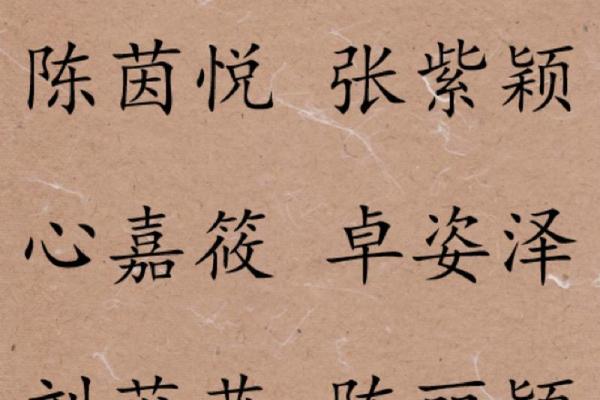 陈茵悦 张紫颖
心嘉筱 卓姿泽
陈丽颖